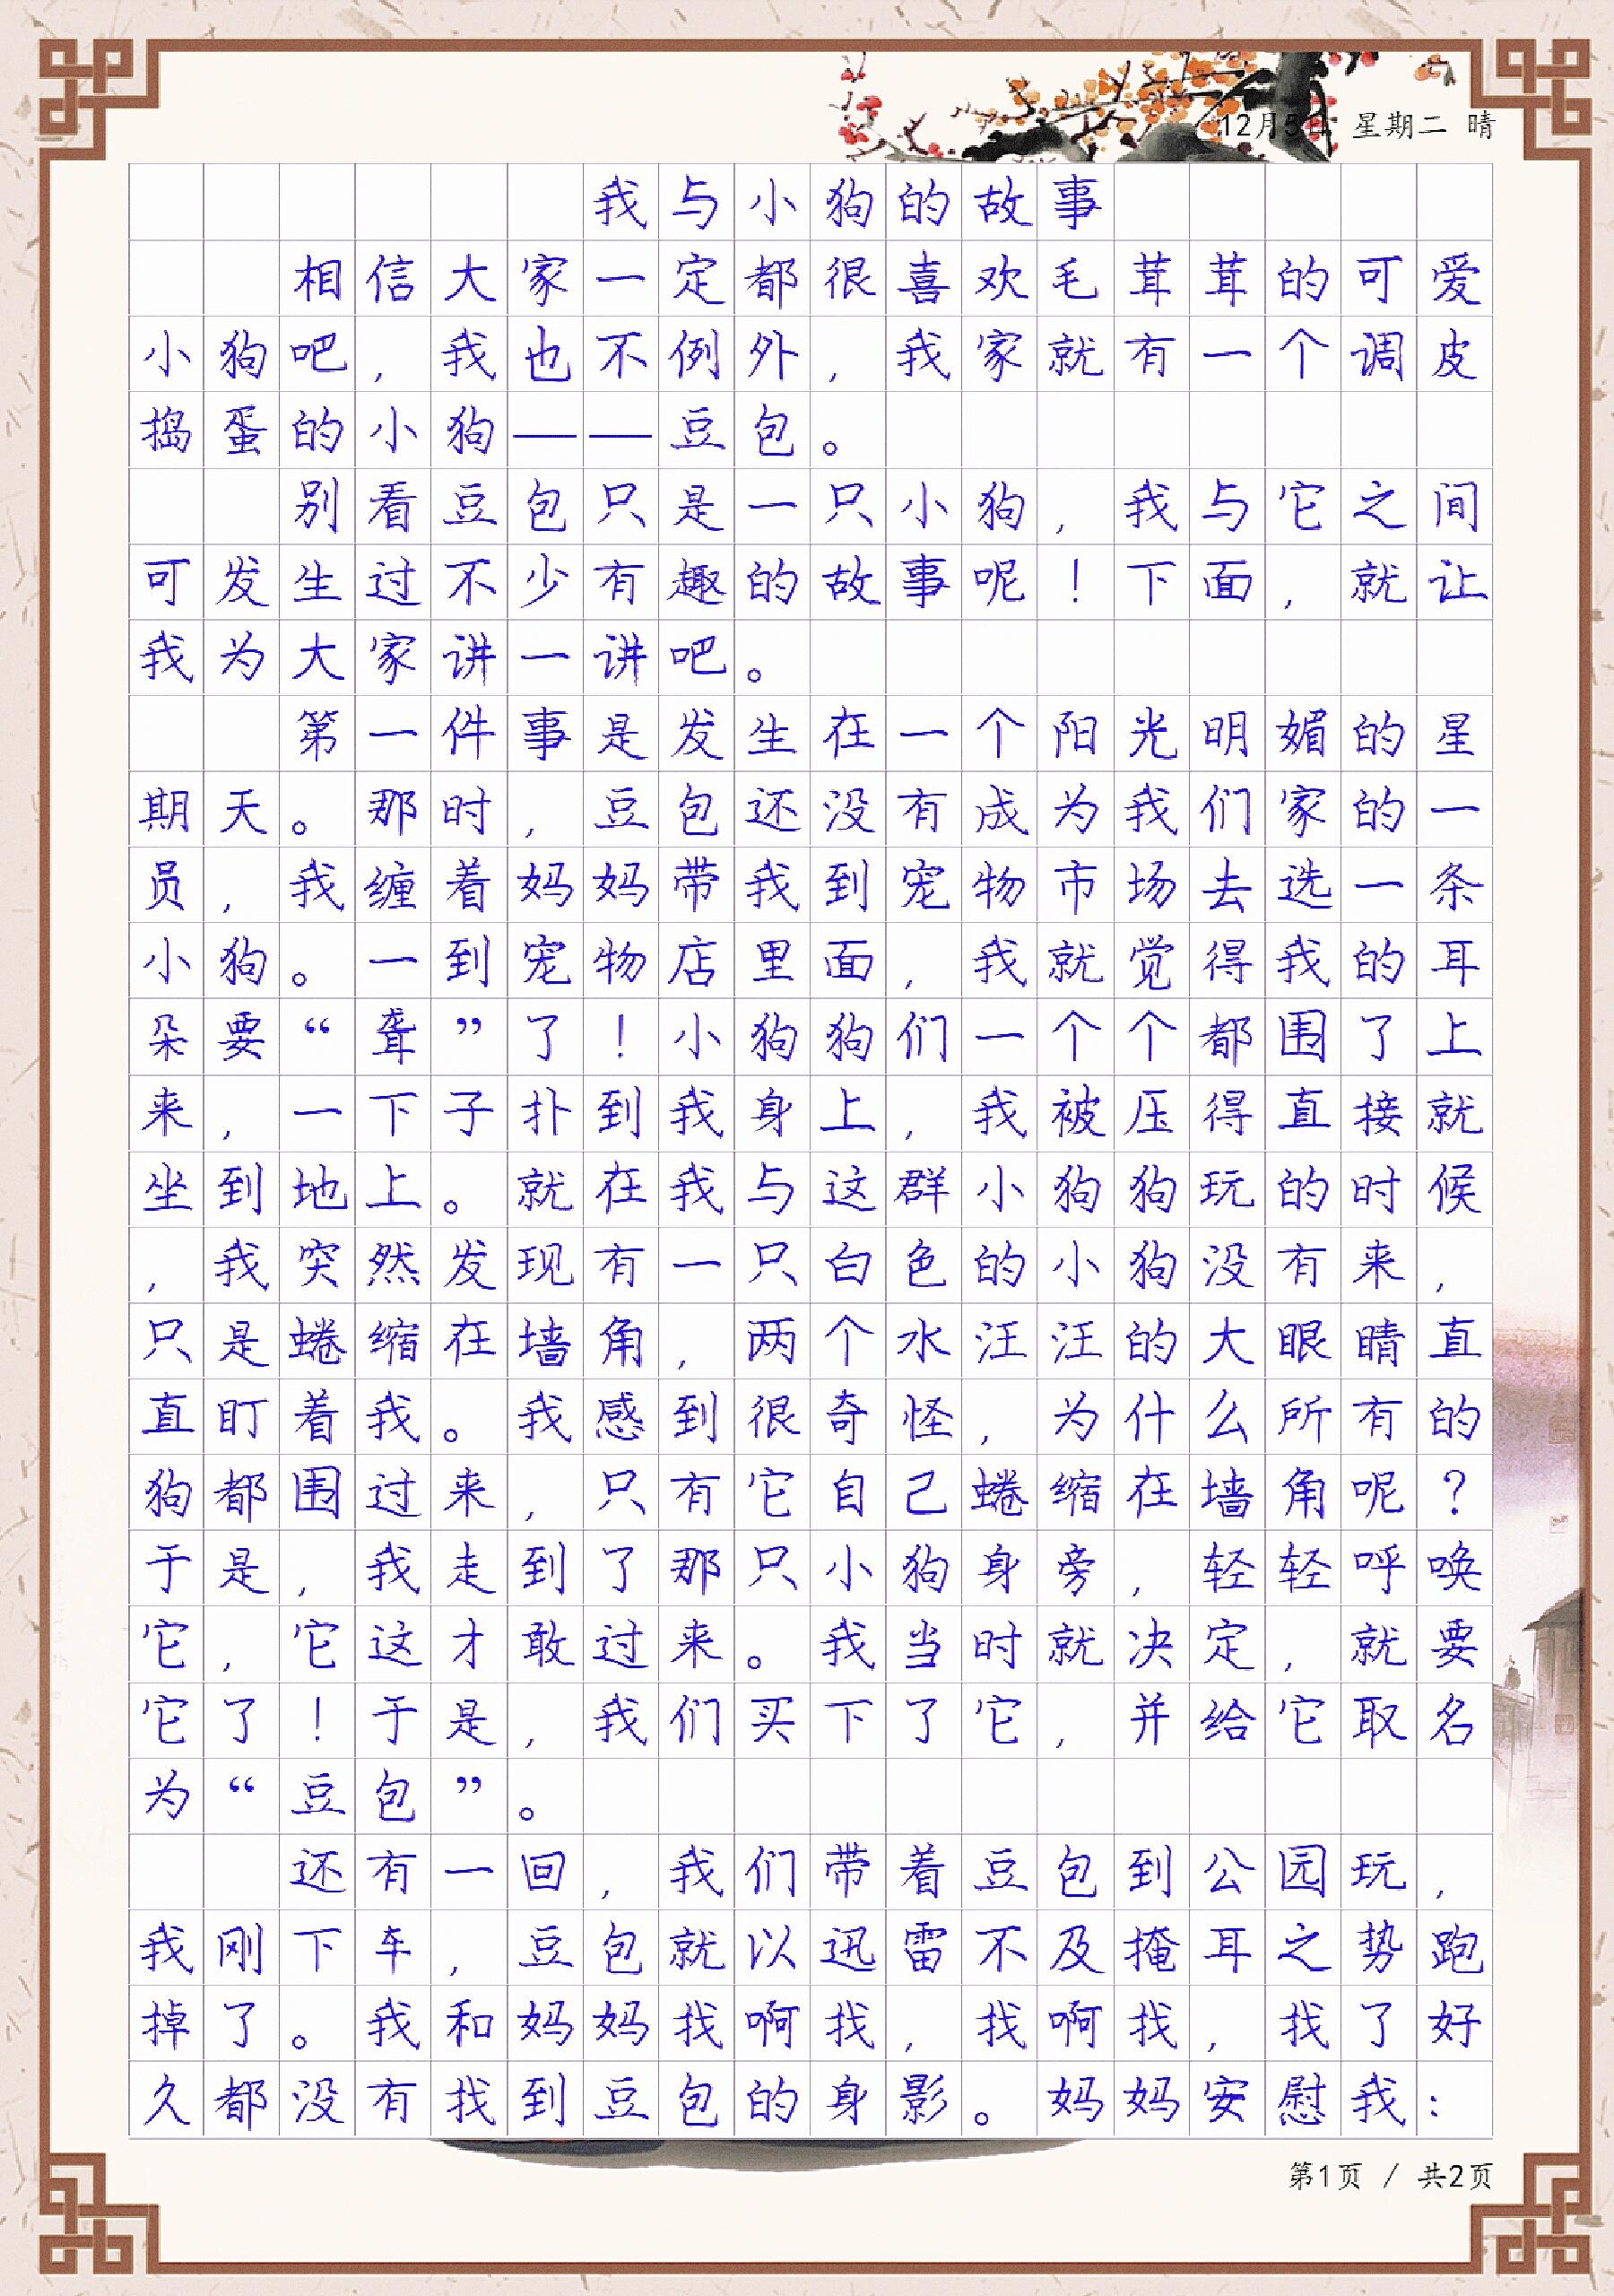 12月5日 星期二 晴
我与小狗的故事
相信大家一定都很喜欢毛茸茸的可爱
小狗吧，我也不例外，我家就有一个调皮
捣蛋的小狗——豆包。
别看豆包只是一只小狗，我与它之间
可发生过不少有趣的故事呢！下面，就让
我为大家讲一讲吧。
第一件事是发生在一个阳光明媚的星
期天。那时，豆包还没有成为我们家的一
员，我缠着妈妈带我到宠物市场去选一条
小狗。一到宠物店里面，我就觉得我的耳
朵要“聋”了！小狗狗们一个个都围了上
来，一下子扑到我身上，我被压得直接就
坐到地上。就在我与这群小狗狗玩的时候
，我突然发现有一只白色的小狗没有来，
只是蜷缩在墙角，两个水汪汪的大眼睛直
直盯着我。我感到很奇怪，为什么所有的
狗都围过来，只有它自己蜷缩在墙角呢？
于是，我走到了那只小狗身旁，轻轻呼唤
它，它这才敢过来。我当时就决定，就要
它了！于是，我们买下了它，并给它取名
为“豆包”。
还有一回，我们带着豆包到公园玩，
我刚下车，豆包就以迅雷不及掩耳之势跑
掉了。我和妈妈找啊找，找啊找，找了好
久都没有找到豆包的身影。妈妈安慰我：
第1页 / 共2页